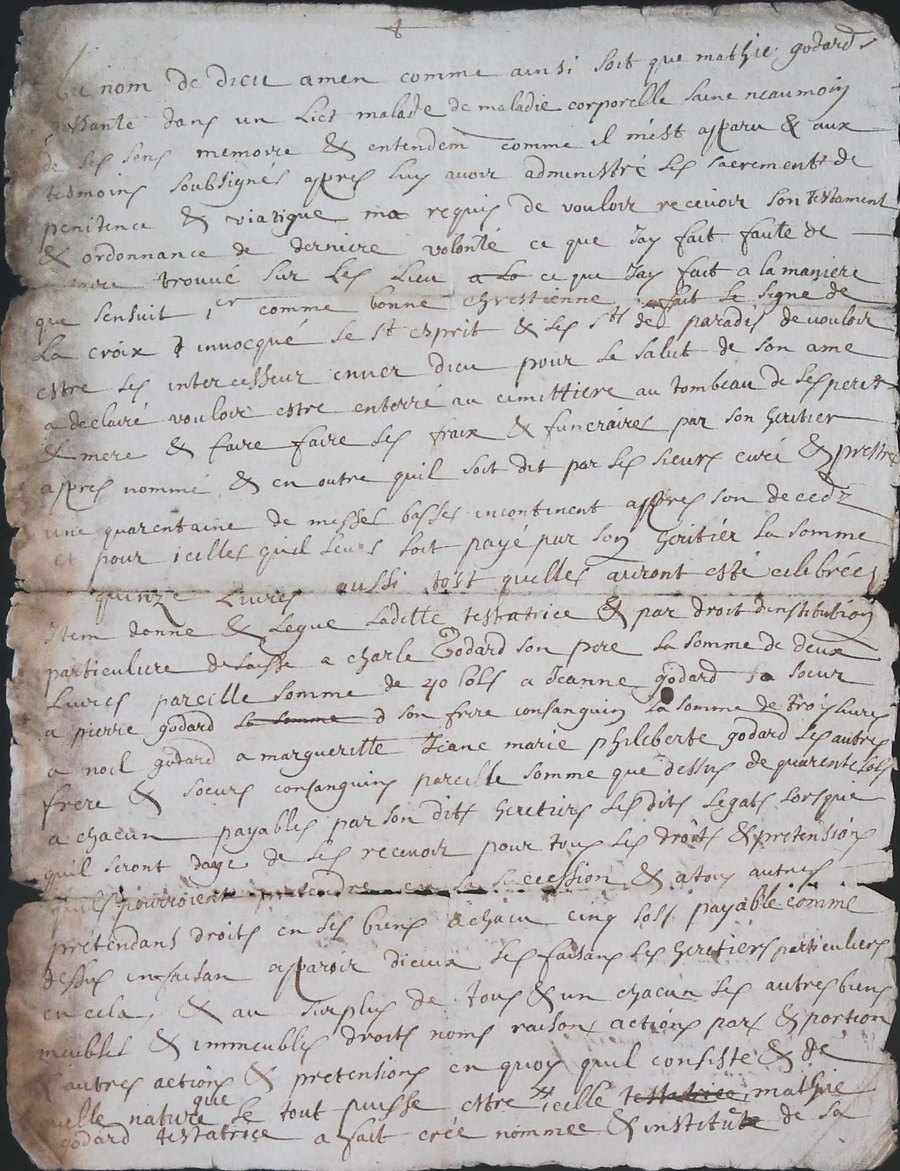 Au nom de dieu amen comme ainsi soit que mathie godard
gisante dans un lict malade de maladie corporelle saine neaumoin
de ses sens memoire & entendem comme il mest apparu & aux
tesmoins soubsignes appres luy avoir administré les sacrements de
penitence & viatique ma requis de vouloir recevoir son testament
& ordonnance de derniere volonté ce que Jay fait faute de
trouvé sur les lieu ce que Jay fait a la maniere
que sensuit 1er comme bonne chrestienne a fait le signe de
La croix & invocqué le st esprit & les sts de paradis de vouloir
estre ses intercesseur enver dieu pour le salut de son ame
a declairé vouloir estre enterré au cimittiere au tombeau de ses peres
& mere & faire faire ses fraix & funeraires par son heritier
appres nommé & en outre quil soit dit par les sieurs curé & prestre
une quarentaine de messes basses incontinent appres son decedz
et pour icelles quil leurs soit payé par son heritier la somme
quinze Livres aussi tost quelles auront esté celebrées
Item donne & legue laditte testatrice & par droit dinstitution
particuliere delaisse a charle Godard son pere la somme de deux
Livres pareille somme de 40 sols a Jeanne godard sa soeur
a pierre godard la somme & son frere consanguin la somme de trois livres
a noel godard a margueritte Jiane marie philiberte godard les autres
frere & soeurs consanguins pareille somme que dessus de quarente sols
a chacun payables par son dit heretiers lesdits legats lorsque
quil seront dage de les recevoir pour tous les droits & pretensions
quils pourroient pretendre en sa succession & a tous autres
pretendant droits en ses biens a chacu cinq sols payable comme
dessus en faisan apparoir diceux les faisans ses heritiers particuliers
en cela & au surplus de tous & un chacun ses autres biens
meubles & immeubles droits noms raisons actions part & portion
& autres actions & pretensions en quoy quil consiste & de
quelle nature que le tout puisse estre icelle testatrice mathie
godard testatrice a fait crée nommée & institute de sa